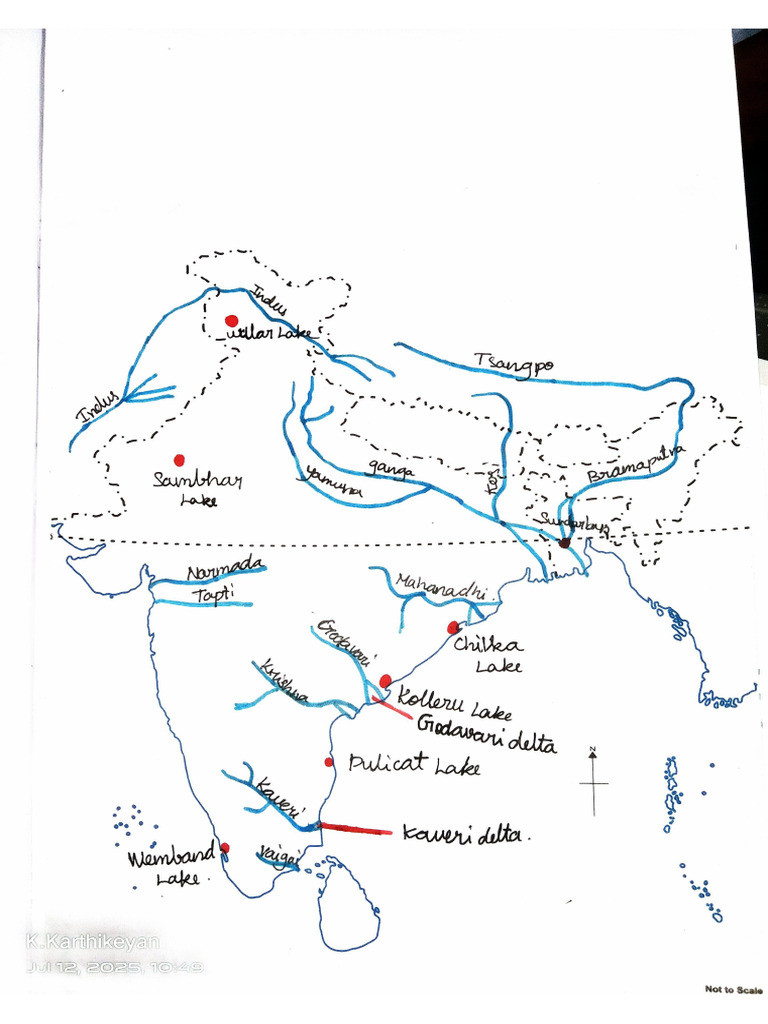 Indus
wllar Lake
Tsangpo
Indus
Sambhar
Lake
Yamuna
ganga
Kosi
Bramaputra
Sundarbans
Narmada
Tapti
Mahanadhi
Godavari
Chilka
Lake
Krishna
Kolleru Lake
Godavari delta
Pulicat Lake
N
Kaveri
Kaveri delta.
Wemband
Lake
Vaigai
K.Karthikeyan
Jul 12, 2025, 10:49
Not to Scale